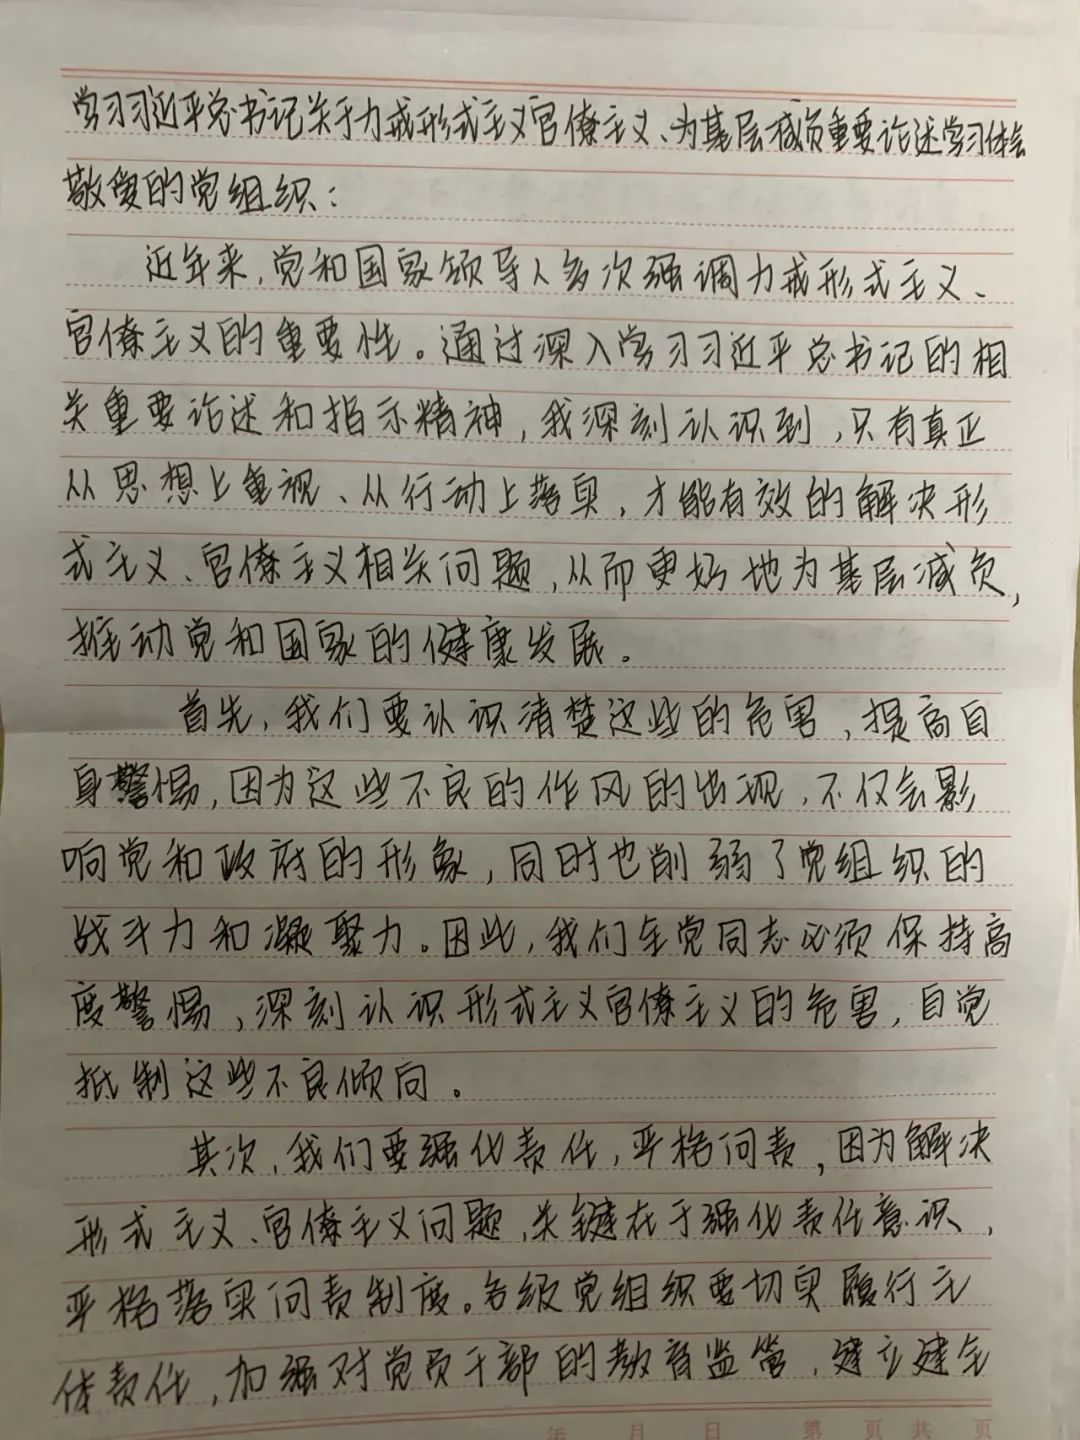 学习习近平总书记关于力戒形式主义官僚主义、为基层减负重要论述学习体会
敬爱的党组织：
近年来，党和国家领导人多次强调力戒形式主义、
官僚主义的重要性。通过深入学习习近平总书记的相
关重要论述和指示精神，我深刻认识到，只有真正
从思想上重视、从行动上落实，才能有效的解决形
式主义、官僚主义相关问题，从而更好地为基层减负，
推动党和国家的健康发展。
首先，我们要认识清楚这些的危害，提高自
身警惕，因为这些不良的作风的出现，不仅会影
响党和政府的形象，同时也削弱了党组织的
战斗力和凝聚力。因此，我们全党同志必须保持高
度警惕，深刻认识形式主义官僚主义的危害，自觉
抵制这些不良倾向。
其次，我们要强化责任，严格问责，因为解决
形式主义、官僚主义问题，关键在于强化责任意识，
严格落实问责制度。各级党组织要切实履行主
体责任，加强对党员干部的教育监管，建立建全
年 月 日 第 页 共 页